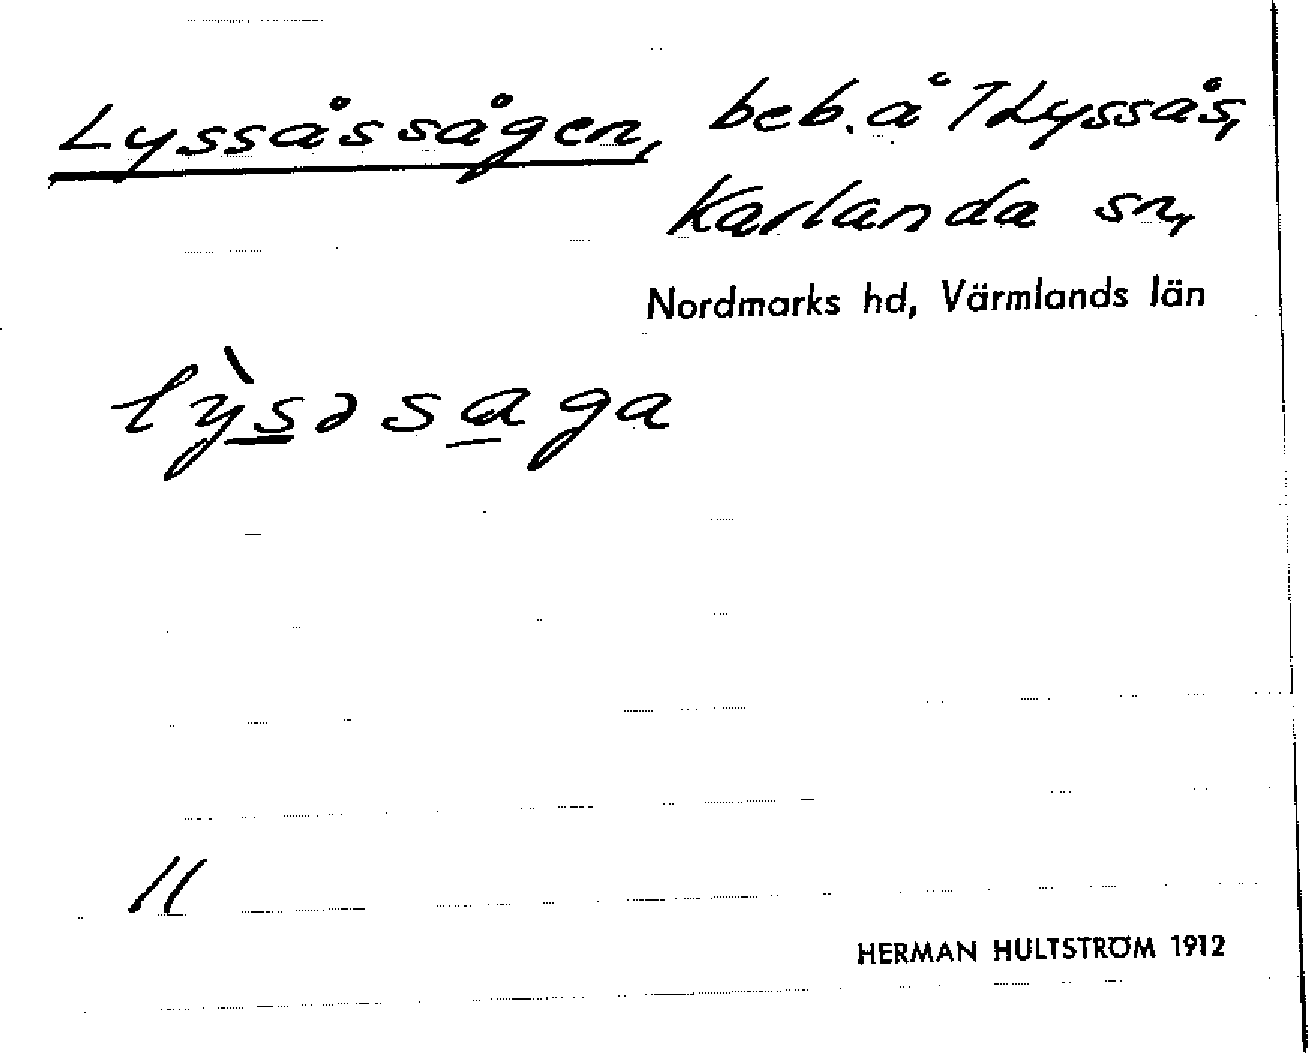 Lyssåssågen, beb. å 1 Lyssås,
Karlanda sn,
Nordmarks hd, Värmlands län
lỳsəsaga
11
HERMAN HULTSTRÖM 1912